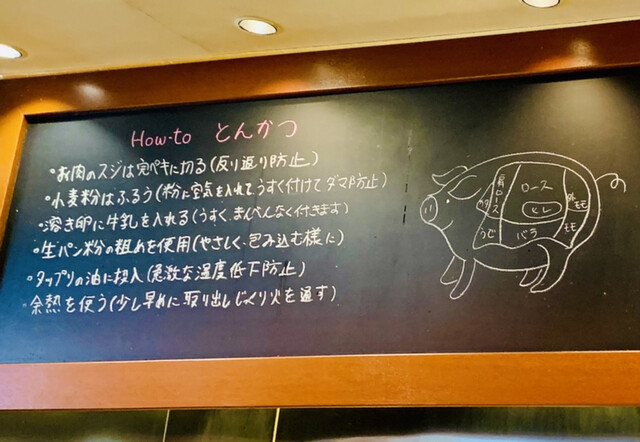 How-to とんかつ
・お肉のスジは完ペキに切る(反り返り防止)
・小麦粉はふるう(粉に空気を入れてうすく付けてダマ防止)
・溶き卵に牛乳を入れる(うすく、まんべんなく付きます)
・生パン粉の粗めを使用(やさしく包み込む様に)
・タップリの油に投入(急激な温度低下防止)
余熱を使う(少し早めに取り出しじっくり火を通す)
肩ロース
ロース
ヒレ
バラ
うで
モモ